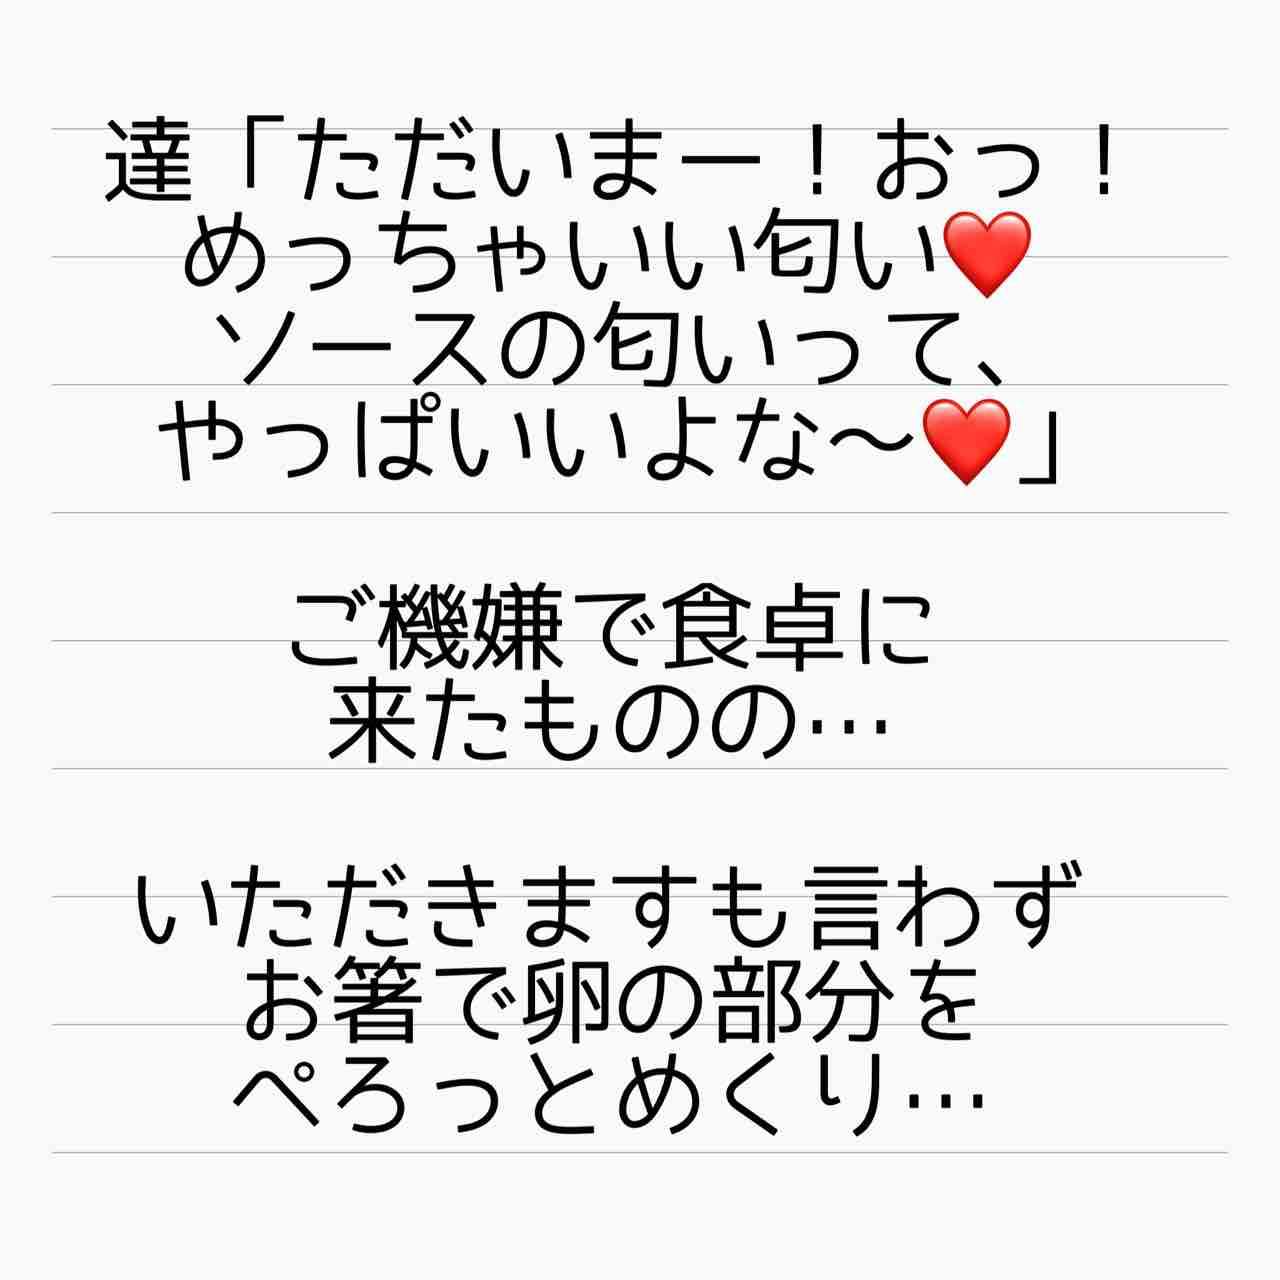 達「ただいまー！おっ！
めっちゃいい匂い❤️
ソースの匂いって、
やっぱいいよな〜❤️」
ご機嫌で食卓に
来たものの…
いただきますも言わず
お箸で卵の部分を
ぺろっとめくり…